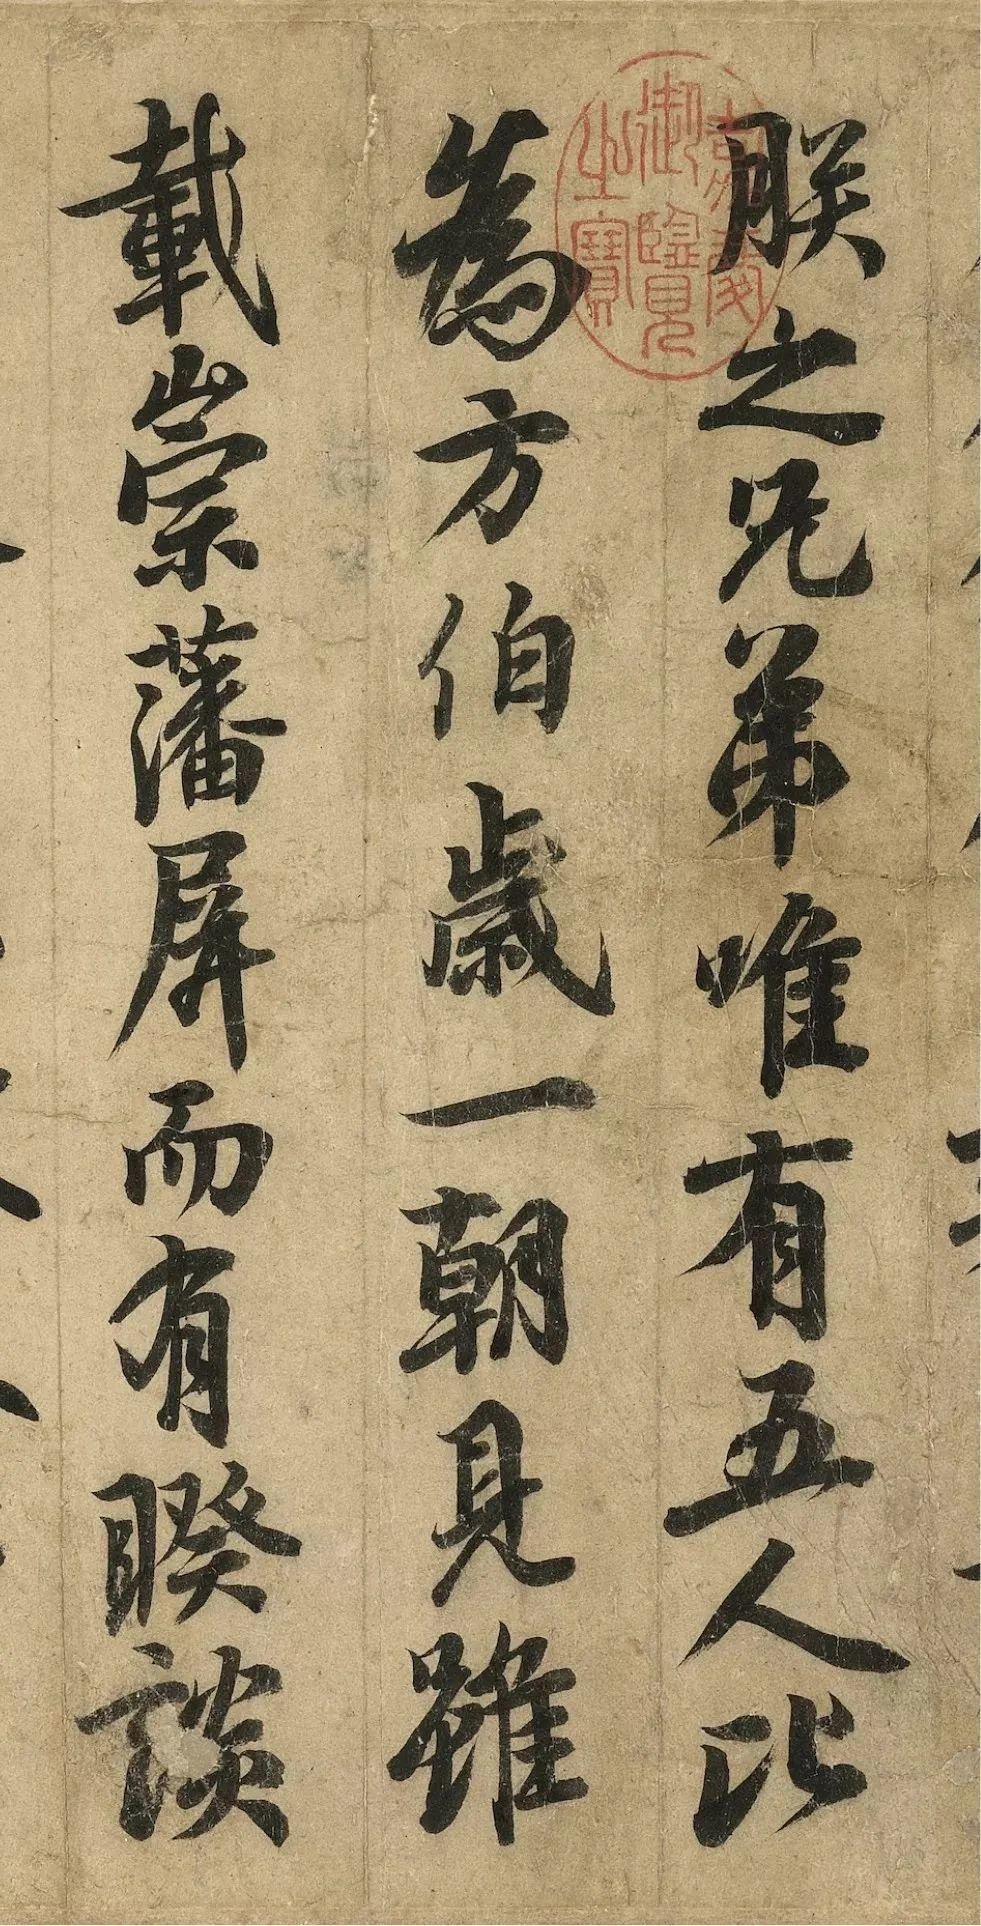 朕之兄弟唯有五人比
為方伯歲一朝見雖
載崇藩屏而有睽談
嘉慶御覽之寶